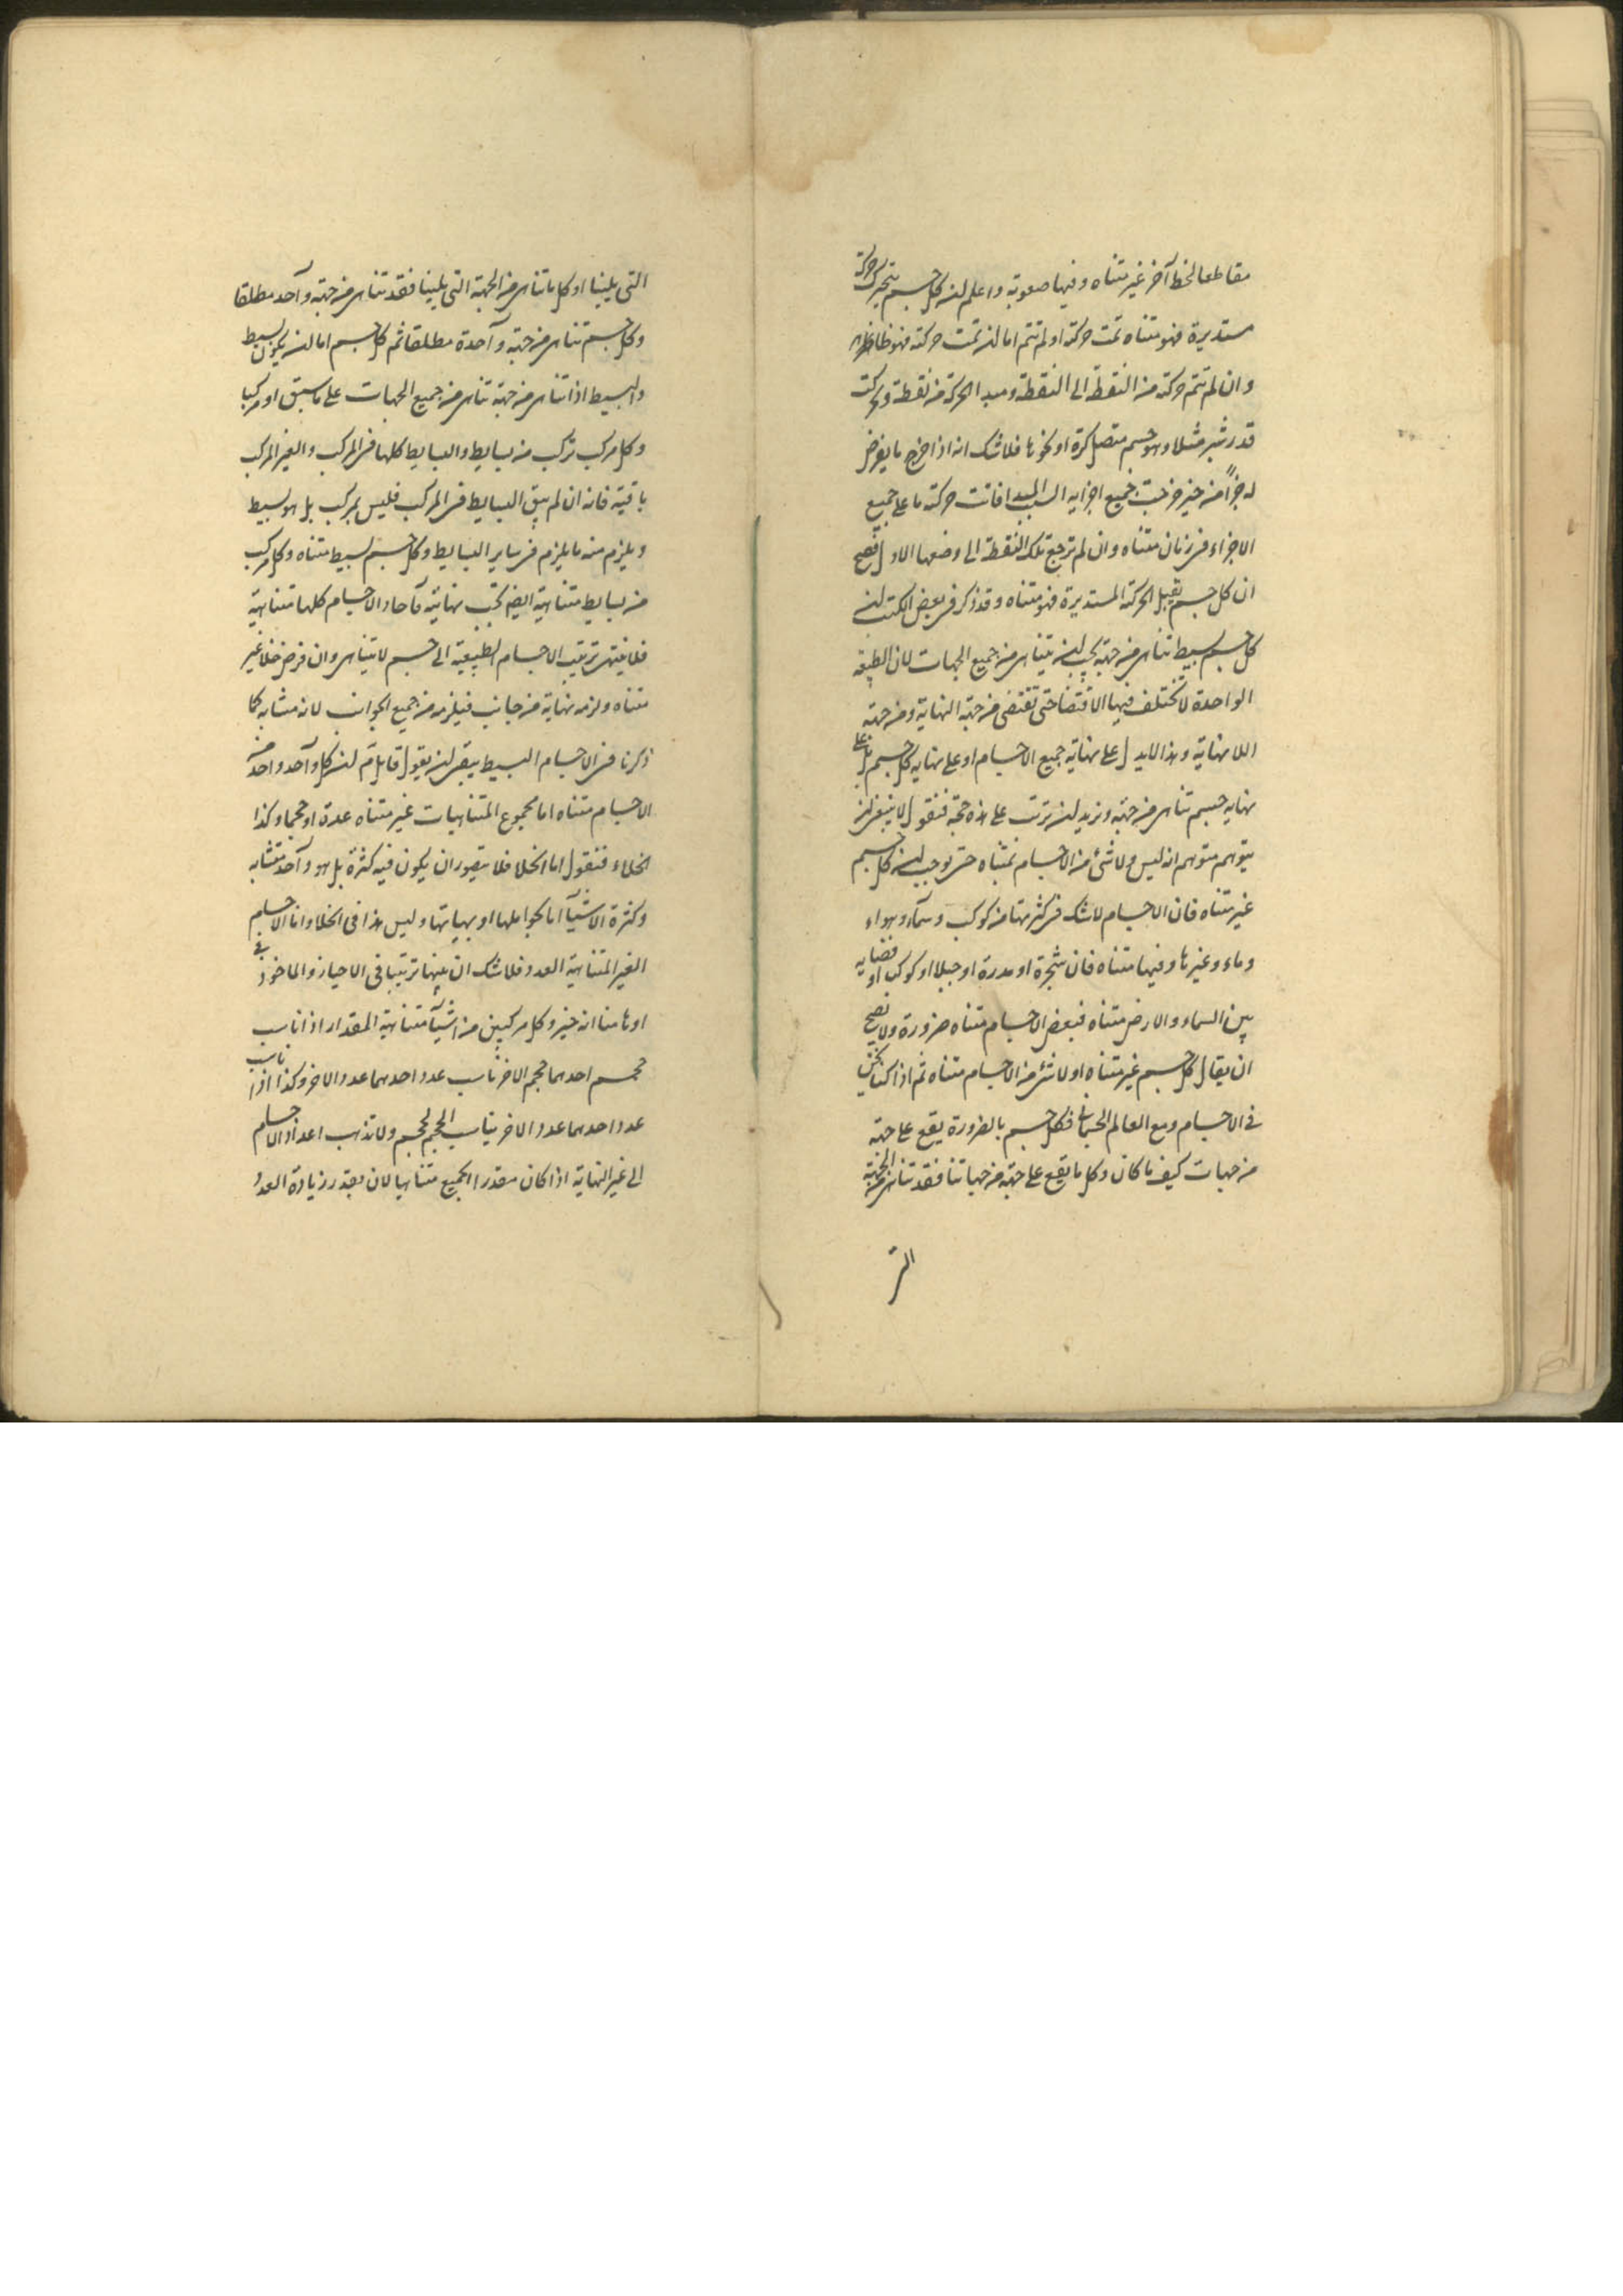 مقاطعا لخط آخر غير متناه وفيها صعوبة واعلم ان كل جسم يتحرك حركة
مستديرة فهو متناه تمت حركته او لم تتم اما ان تمت حركته فهو ظاهر
وان لم تتم حركته من النقطة الى النقطة ومبدا الحركة من نقطة وتحركت
قدر شبر مثلا وهو جسم متصل كرة او نحوها فلا شك انه اذا خرج ما يفرض
له جزأ من حيز خرجت جميع اجزايه الى المبدا فاتت حركته ما على جميع
الاجزاء فى زمان متناه وان لم ترجع تلك النقطة الى وضعها الاول فصح
ان كل جسم يقبل الحركة المستديرة فهو متناه وقد ذكر فى بعض الكتب ان
كل جسم بسيط تناهى من جهة يجب ان يتناهى من جميع الجهات لان الطبيعة
الواحدة لا تختلف فيها الاقتضا حتى تقتضى من جهة النهاية ومن جهة
اللا نهاية وهذا لا يدل على نهاية جميع الاجسام او على نهايه كل جسم بل على
نهايه جسم تناهى من جهة ونريد ان نرتب على هذه حجة فنقول لا ينبغى ان
يتوهم متوهم انه ليس ولا شئ من الاجسام بمتناه حتى يوجب ان كل جسم
غير متناه فان الاجسام لا شك فى كثرتها من كوكب وسماء وهواء
وماء وغيرها وفيها متناه فان شجرة او مدرة او جبلا او كوكب او فضايه
بين السماء والارض متناه فبعض الاجسام متناه ضرورة ولا يصح
ان يقال كل جسم غير متناه او لا شئ من الاجسام متناه ثم اذا كنا نحن
فى الاجسام ومع العالم الجسمانى فكل جسم بالضرورة يقع على جهة
من جهات كيف ما كان وكل ما يقع على جهة من جهاتنا فقد تناهى من الجهة
التى
التى يلينا او كل ما تناهى من الجهة التى يلينا فقد تناهى من جهة واحد مطلقا
وكل جسم تناهى من جهة واحدة مطلقا ثم كل جسم اما ان يكون بسيط
والبسيط اذا تناهى من جهة تناهى من جميع الجهات على ما سبق او مركبا
وكل مركب تركب من بسايط والبسايط كلها فى المركب والغير المركب
باقية فانه ان لم يبق البسايط فى المركب فليس بمركب بل هو بسيط
ويلزم منه ما يلزم فى ساير البسايط وكل جسم بسيط متناه وكل مركب
من بسايط متناهية ايضا يجب نهايته فآحاد الاجسام كلها متناهية
فلا ينتهى ترتيب الاجسام الطبيعية الى جسم لا يتناهى وان فرض خلا غير
متناه ولزمه نهاية من جانب فيلزمه من جميع الجوانب لانه متشابه كما
ذكرنا فى الاجسام البسيط يبقى ان يقول قايل ثم ان كل واحد واحد من
الاجسام متناه اما مجموع المتناهيات غير متناه عدة او حجما وكذا
الخلاء فنقول اما الخلا فلا يتصور ان يكون فيه كثرة بل هو واحد متشابه
وكثرة الاشياء اما بحواملها او بهياتها وليس هذا فى الخلا واما الاجسام
الغير المتناهية العدد فلا شك ان بينها ترتيبا فى الاحياز والماخوذ فى
اوهامنا انه حيز وكل مركبين من اشياء متناهية المقدار اذا ناسب
حجم احدهما حجم الاخر ناسب عدد احدهما عدد الاخر وكذا اذا ناسب
عدد احدهما عدد الاخر يناسب الحجم لحجم ولا تذهب اعداد الاجسام
الى غير النهاية اذا كان مقدرا الجميع متناهيا لان بقدر زيادة العدد